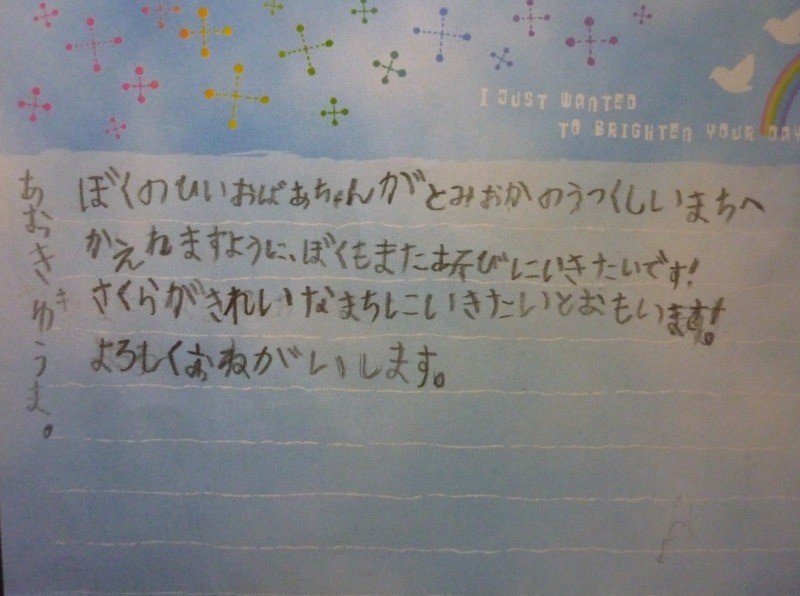 I JUST WANTED
TO BRIGHTEN YOUR DAY
ぼくのひいおばあちゃんがとみおかのうつくしいまちへ
かえれますように、ぼくもまたあそびにいきたいです!
さくらがきれいなまちにいきたいとおもいます!
よろしくおねがいします。